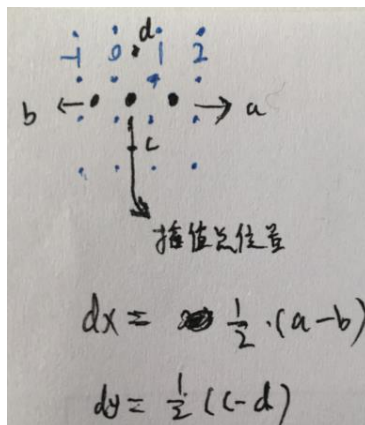 d
-1 0 1 2
b a
c
插值点位置
dx = 1/2 · (a-b)
dy = 1/2 (c-d)